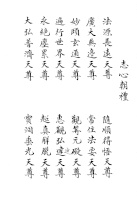 志心朝禮
法源長遠天尊 隨順得悟天尊
廣大無邊天尊 常住法要天尊
妙頤玄通天尊 觀見元天尊
遍行世界天尊 惠觀弘天尊
永絕塵累天尊 真解脫天尊
大弘普濟天尊 寶洞光天尊